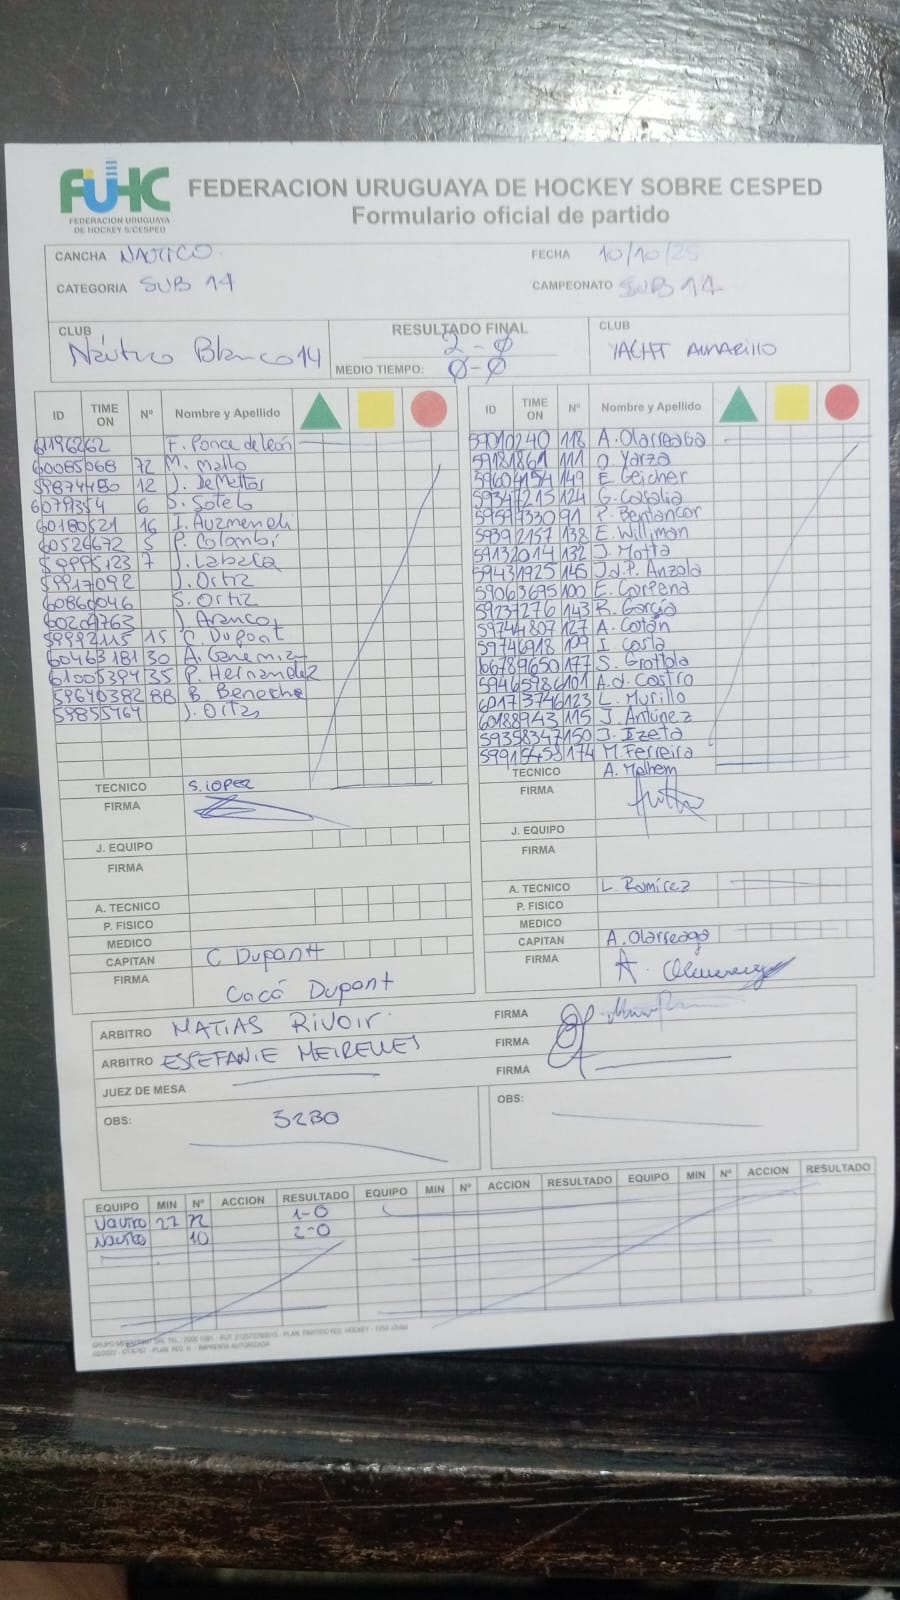 FUHC
FEDERACION URUGUAYA
DE HOCKEY S/CESPED
FEDERACION URUGUAYA DE HOCKEY SOBRE CESPED
Formulario oficial de partido
CANCHA NAUTICO FECHA 10/10/25
CATEGORIA SUB 14 CAMPEONATO SUB 14
CLUB Náutico Blanco 14
RESULTADO FINAL 2-0
MEDIO TIEMPO: 0-0
CLUB YACHT AMARILLO
ID TIME ON Nº Nombre y Apellido
61196262 F. Ponce de león
60085068 72 M. Mallo
59874480 12 J. DeMattos
6079354 6 S. Sotelo
60180521 16 I. Auzmendi
60526672 5 P. Colombi
59995123 7 J. Labala
59917092 J. Ortiz
60860046 S. Ortiz
60204763 J. Aranco
59992115 15 C. Dupont
60463181 30 A.
61005394 35 P. Hernandez
59640382 88 B. Beneche
59855464 J. Ortiz
TECNICO S. LOPEZ
FIRMA
J. EQUIPO
FIRMA
A. TECNICO
P. FISICO
MEDICO
CAPITAN C Dupont
FIRMA Cocó Dupont
ID TIME ON Nº Nombre y Apellido
59010240 118 A. Olarreaga
59181861 111 O Yarza
59604154 149 E. Geicher
59347215 124 G. Casalia
59597330 91 P. Bentancor
59392157 138 E. Williman
59132014 132 J. Motta
59431925 145 J.d.P. Anzola
59063695 100 E. Corpena
59237276 143 B. García
59744807 127 A. Cotán
59746918 109 I. Costa
66789650 177 S. Grottola
59465986 101 A.d. Castro
60173746 123 L. Murillo
60188943 115 J. Antúnez
59358347 150 J. Izeta
59915453 174 M Ferreira
TECNICO A. Molhem
FIRMA
J. EQUIPO
FIRMA
A. TECNICO L. Ramirez
P. FISICO
MEDICO
CAPITAN A. Olarreaga
FIRMA A.
ARBITRO MATIAS RIVOIR FIRMA
ARBITRO ESTEFANIE MEIRELLES FIRMA
JUEZ DE MESA FIRMA
OBS: 3230
OBS:
EQUIPO MIN Nº ACCION RESULTADO EQUIPO MIN Nº ACCION RESULTADO EQUIPO MIN Nº ACCION RESULTADO
Nautico 27 72 1-0
Nautico 10 2-0